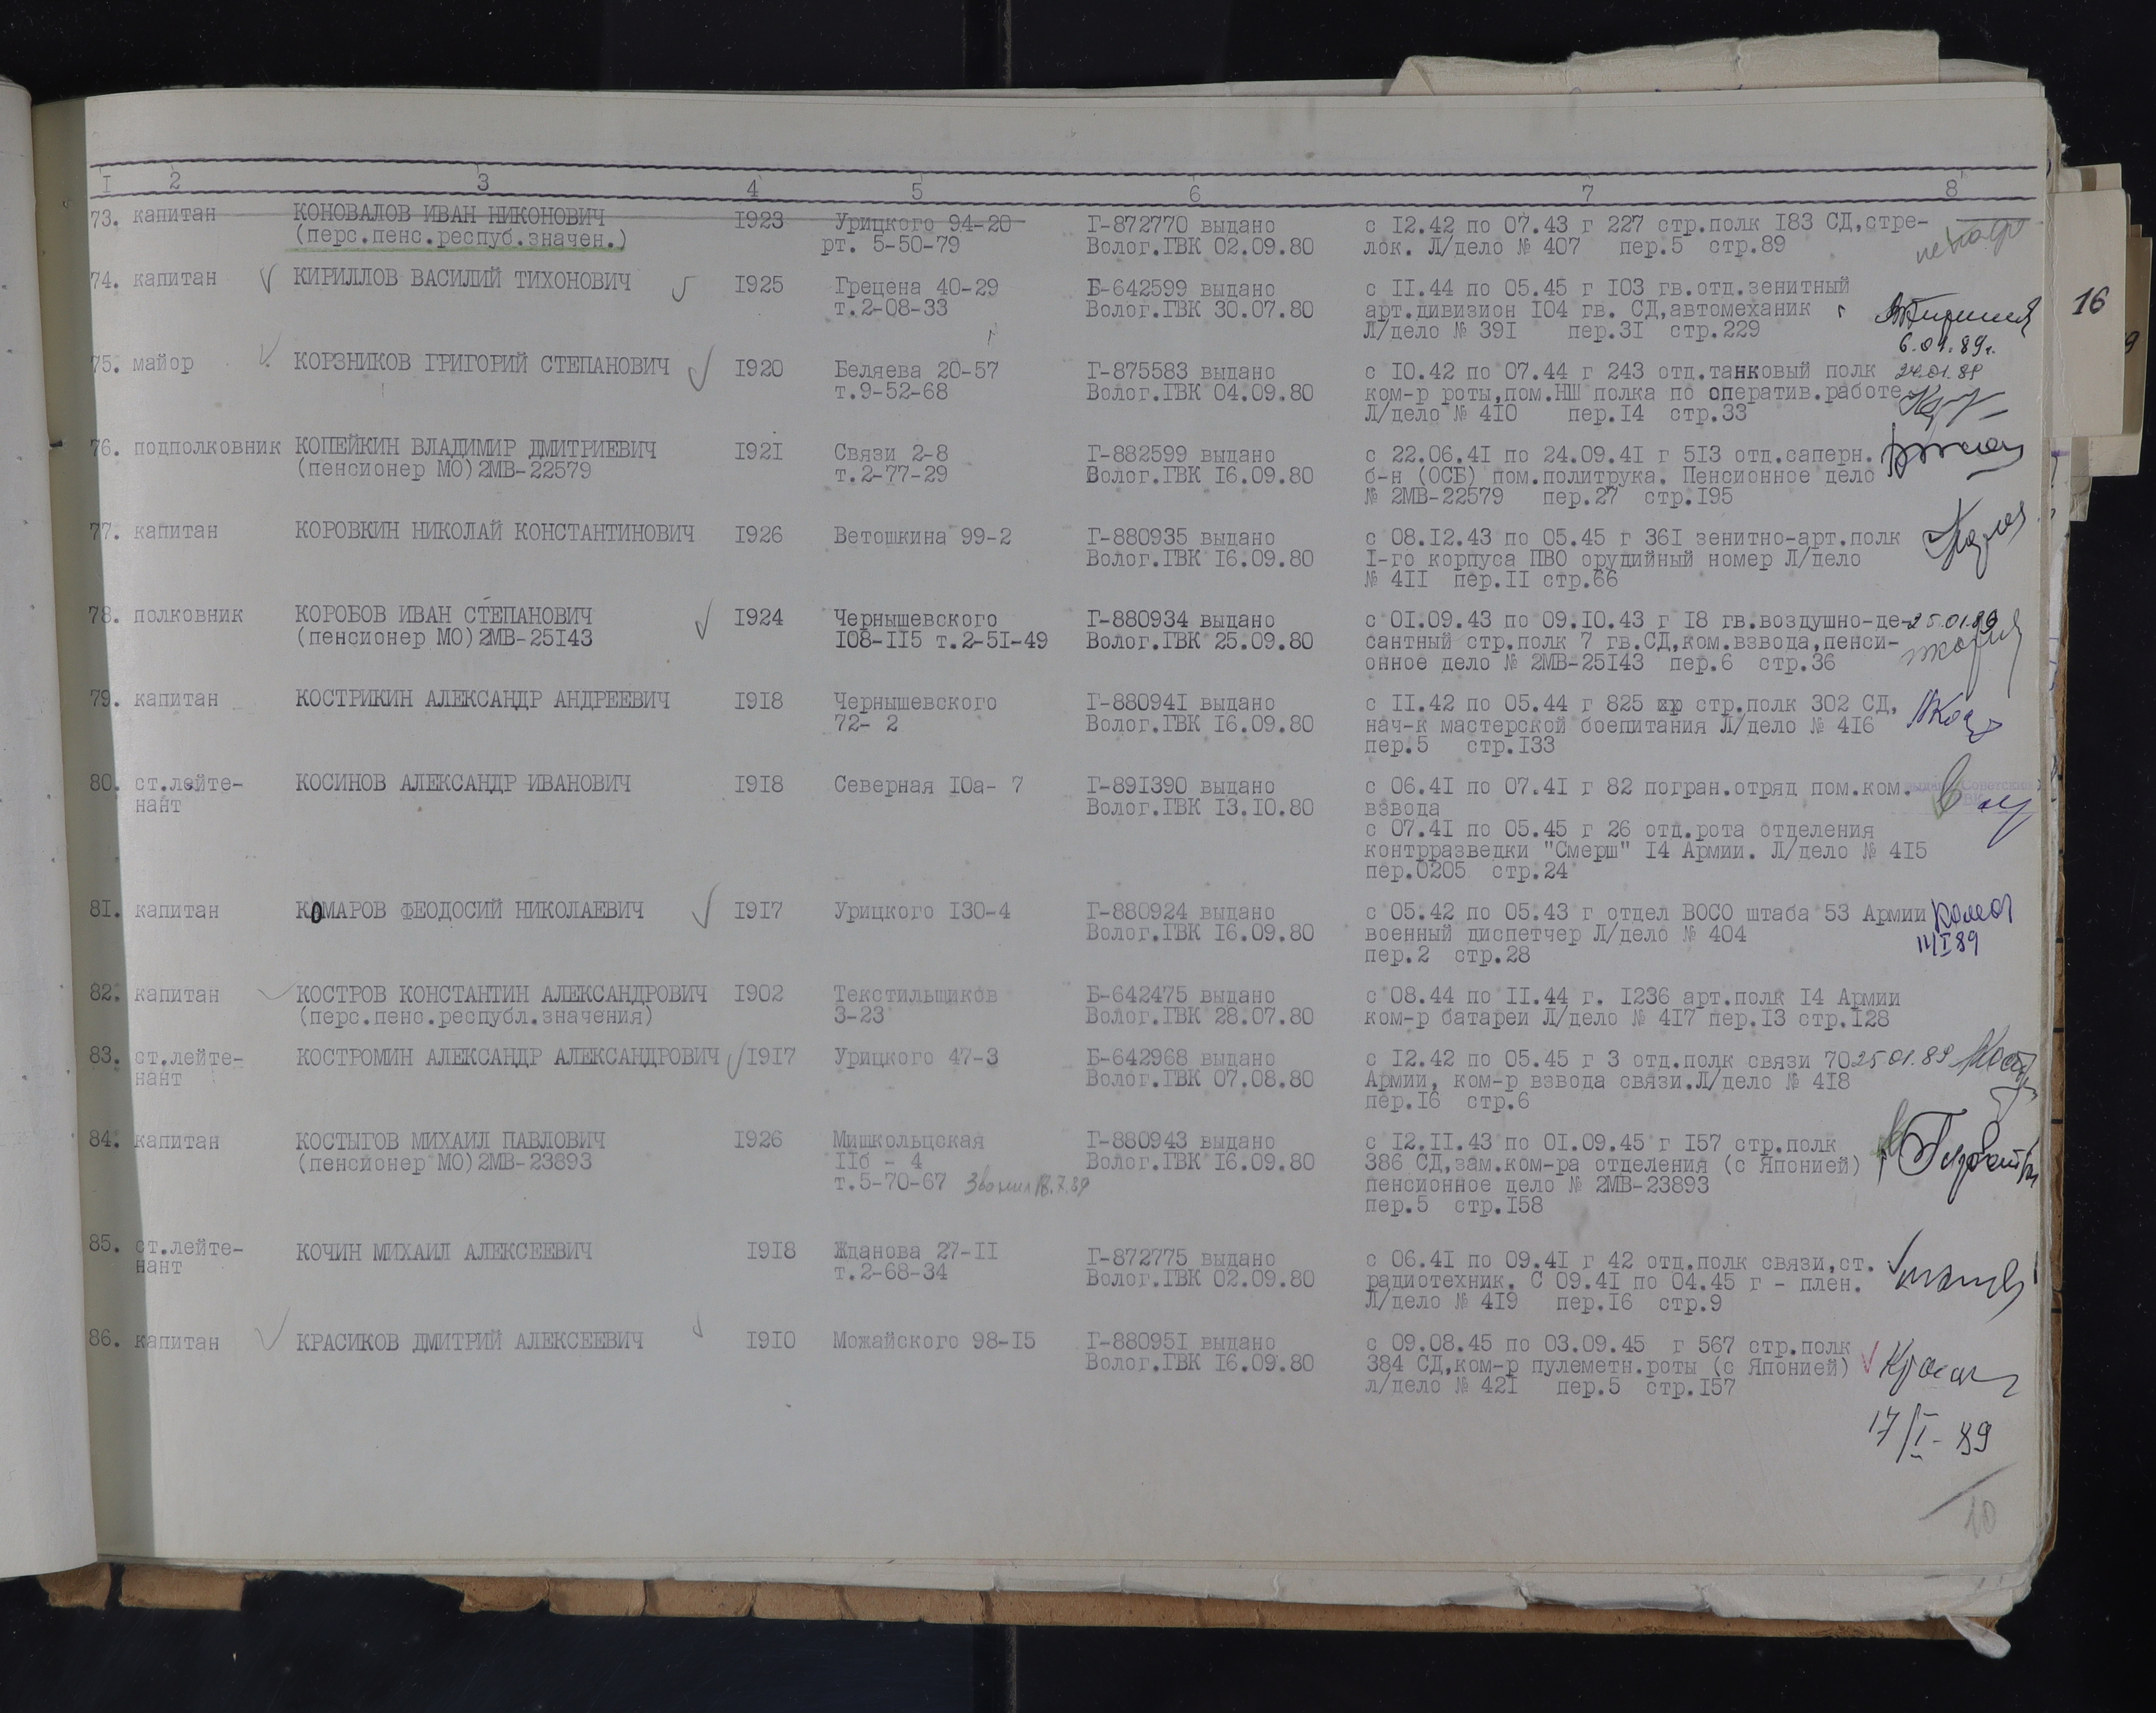 1 2 3 4 5 6 7 8
73. капитан КОНОВАЛОВ ИВАН НИКОНОВИЧ 1923 Урицкого 94-20 Г-872770 выдано с 12.42 по 07.43 г 227 стр.полк 183 СД,стре-
(перс.пенс.респуб.значен.) рт. 5-50-79 Волог.ГВК 02.09.80 лок. Л/дело № 407 пер.5 стр.89
74. капитан КИРИЛЛОВ ВАСИЛИЙ ТИХОНОВИЧ 1925 Грецена 40-29 Б-642599 выдано с 11.44 по 05.45 г 103 гв.отд.зенитный
т.2-08-33 Волог.ГВК 30.07.80 арт.дивизион 104 гв. СД,автомеханик
Л/дело № 391 пер.31 стр.229
6.01.89г.
75. майор КОРЗНИКОВ ГРИГОРИЙ СТЕПАНОВИЧ 1920 Беляева 20-57 Г-875583 выдано с 10.42 по 07.44 г 243 отд.танковый полк 24.01.89
т.9-52-68 Волог.ГВК 04.09.80 ком-р роты,пом.НШ полка по оператив.работе
Л/дело № 410 пер.14 стр.33
76. подполковник КОПЕЙКИН ВЛАДИМИР ДМИТРИЕВИЧ 1921 Связи 2-8 Г-882599 выдано с 22.06.41 по 24.09.41 г 513 отд.саперн.
(пенсионер МО)2МВ-22579 т.2-77-29 Волог.ГВК 16.09.80 б-н (ОСБ) пом.политрука. Пенсионное дело
№ 2МВ-22579 пер.27 стр.195
77. капитан КОРОВКИН НИКОЛАЙ КОНСТАНТИНОВИЧ 1926 Ветошкина 99-2 Г-880935 выдано с 08.12.43 по 05.45 г 361 зенитно-арт.полк
Волог.ГВК 16.09.80 1-го корпуса ПВО орудийный номер Л/дело
№ 411 пер.11 стр.66
78. полковник КОРОБОВ ИВАН СТЕПАНОВИЧ 1924 Чернышевского Г-880934 выдано с 01.09.43 по 09.10.43 г 18 гв.воздушно-де- 25.01.89
(пенсионер МО)2МВ-25143 108-115 т.2-51-49 Волог.ГВК 25.09.80 сантный стр.полк 7 гв.СД,ком.взвода,пенси-
онное дело № 2МВ-25143 пер.6 стр.36
79. капитан КОСТРИКИН АЛЕКСАНДР АНДРЕЕВИЧ 1918 Чернышевского Г-880941 выдано с 11.42 по 05.44 г 825 стр.полк 302 СД,
72- 2 Волог.ГВК 16.09.80 нач-к мастерской боепитания Л/дело № 416
пер.5 стр.133
80. ст.лейте- КОСИНОВ АЛЕКСАНДР ИВАНОВИЧ 1918 Северная 10а- 7 Г-891390 выдано с 06.41 по 07.41 г 82 погран.отряд пом.ком.
нант Волог.ГВК 13.10.80 взвода
с 07.41 по 05.45 г 26 отд.рота отделения
контрразведки "Смерш" 14 Армии. Л/дело № 415
пер.0205 стр.24
81. капитан КОМАРОВ ФЕОДОСИЙ НИКОЛАЕВИЧ 1917 Урицкого 130-4 Г-880924 выдано с 05.42 по 05.43 г отдел ВОСО штаба 53 Армии
Волог.ГВК 16.09.80 военный диспетчер Л/дело № 404 11/I 89
пер.2 стр.28
82. капитан КОСТРОВ КОНСТАНТИН АЛЕКСАНДРОВИЧ 1902 Текстильщиков Б-642475 выдано с 08.44 по 11.44 г. 1236 арт.полк 14 Армии
(перс.пенс.республ.значения) 3-23 Волог.ГВК 28.07.80 ком-р батареи Л/дело № 417 пер.13 стр.128
83. ст.лейте- КОСТРОМИН АЛЕКСАНДР АЛЕКСАНДРОВИЧ 1917 Урицкого 47-3 Б-642968 выдано с 12.42 по 05.45 г 3 отд.полк связи 70 25.01.89
нант Волог.ГВК 07.08.80 Армии, ком-р взвода связи.Л/дело № 418
пер.16 стр.6
84. капитан КОСТЫГОВ МИХАИЛ ПАВЛОВИЧ 1926 Мишкольцская Г-880943 выдано с 12.11.43 по 01.09.45 г 157 стр.полк
(пенсионер МО)2МВ-23893 11б - 4 Волог.ГВК 16.09.80 386 СД,зам.ком-ра отделения (с Японией)
т.5-70-67 Звонил 18.7.89 пенсионное дело № 2МВ-23893
пер.5 стр.158
85. ст.лейте- КОЧИН МИХАИЛ АЛЕКСЕЕВИЧ 1918 Жданова 27-11 Г-872775 выдано с 06.41 по 09.41 г 42 отд.полк связи,ст.
нант т.2-68-34 Волог.ГВК 02.09.80 радиотехник. С 09.41 по 04.45 г - плен.
Л/дело № 419 пер.16 стр.9
86. капитан КРАСИКОВ ДМИТРИЙ АЛЕКСЕЕВИЧ 1910 Можайского 98-15 Г-880951 выдано с 09.08.45 по 03.09.45 г 567 стр.полк
Волог.ГВК 16.09.80 384 СД,ком-р пулеметн.роты (с Японией)
л/дело № 421 пер.5 стр.157
17/I-89
10
16